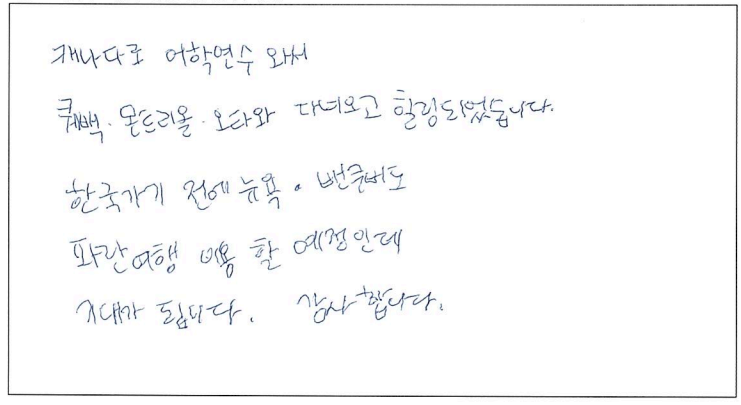 캐나다로 어학연수 와서
퀘백·몬트리올·오타와 다녀오고 힐링되었습니다.
한국가기 전에 뉴욕·벤쿠버도
파란여행 이용 할 예정인데
기대가 됩니다. 감사합니다.